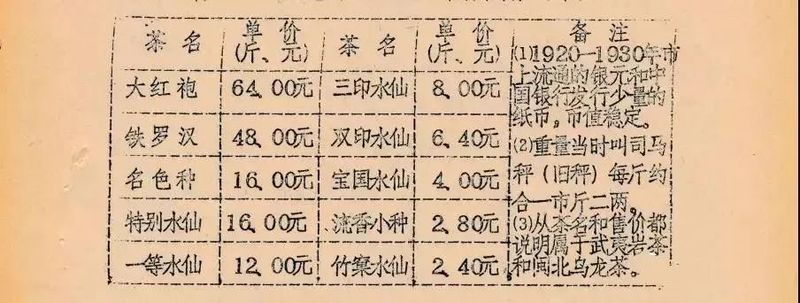 茶名 单价 茶名 单价 备注
(斤、元) (斤、元)
大红袍 64.00元 三印水仙 8.00元
铁罗汉 48.00元 双印水仙 6.40元
名色种 16.00元 宝国水仙 4.00元
特别水仙 16.00元 流香小种 2.80元
一等水仙 12.00元 竹窠水仙 2.40元
(1)1920—1930年市
上流通的银元和中
国银行发行少量的
纸币,币值稳定。
(2)重量当时叫司马
秤(旧秤)每斤约
合一市斤二两。
(3)从茶名和售价都
说明属于武夷岩茶
和闽北乌龙茶。